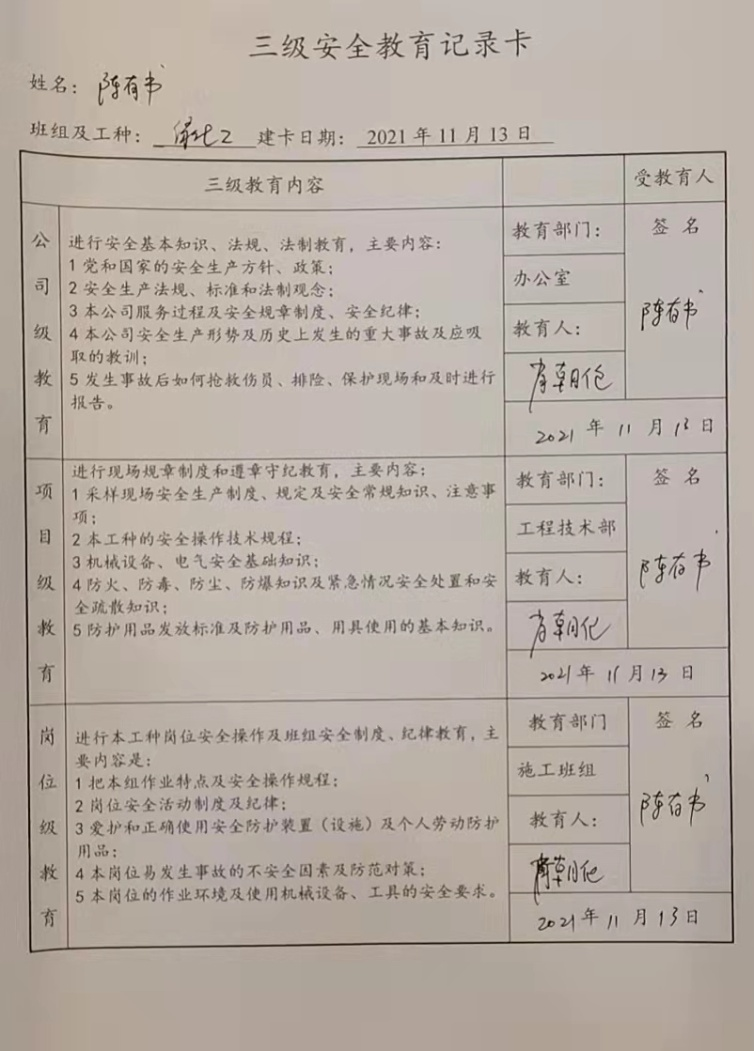 三级安全教育记录卡
姓名: 陈有书
班组及工种: 建卡日期: 2021年11月13日
三级教育内容
受教育人
公司级教育
进行安全基本知识、法规、法制教育，主要内容:
1 党和国家的安全生产方针、政策;
2 安全生产法规、标准和法制观念;
3 本公司服务过程及安全规章制度、安全纪律;
4 本公司安全生产形势及历史上发生的重大事故及应吸
取的教训;
5 发生事故后如何抢救伤员、排险、保护现场和及时进行
报告。
教育部门:
办公室
教育人:
签名
陈有书
2021年11月13日
项目级教育
进行现场规章制度和遵章守纪教育，主要内容:
1 采样现场安全生产制度、规定及安全常规知识、注意事
项;
2 本工种的安全操作技术规程;
3 机械设备、电气安全基础知识;
4 防火、防毒、防尘、防爆知识及紧急情况安全处置和安
全疏散知识;
5 防护用品发放标准及防护用品、用具使用的基本知识。
教育部门:
工程技术部
教育人:
签名
陈有书
2021年11月13日
岗位级教育
进行本工种岗位安全操作及班组安全制度、纪律教育，主
要内容是:
1 把本组作业特点及安全操作规程;
2 岗位安全活动制度及纪律;
3 爱护和正确使用安全防护装置（设施）及个人劳动防护
用品;
4 本岗位易发生事故的不安全因素及防范对策;
5 本岗位的作业环境及使用机械设备、工具的安全要求。
教育部门
施工班组
教育人:
签名
陈有书
2021年11月13日